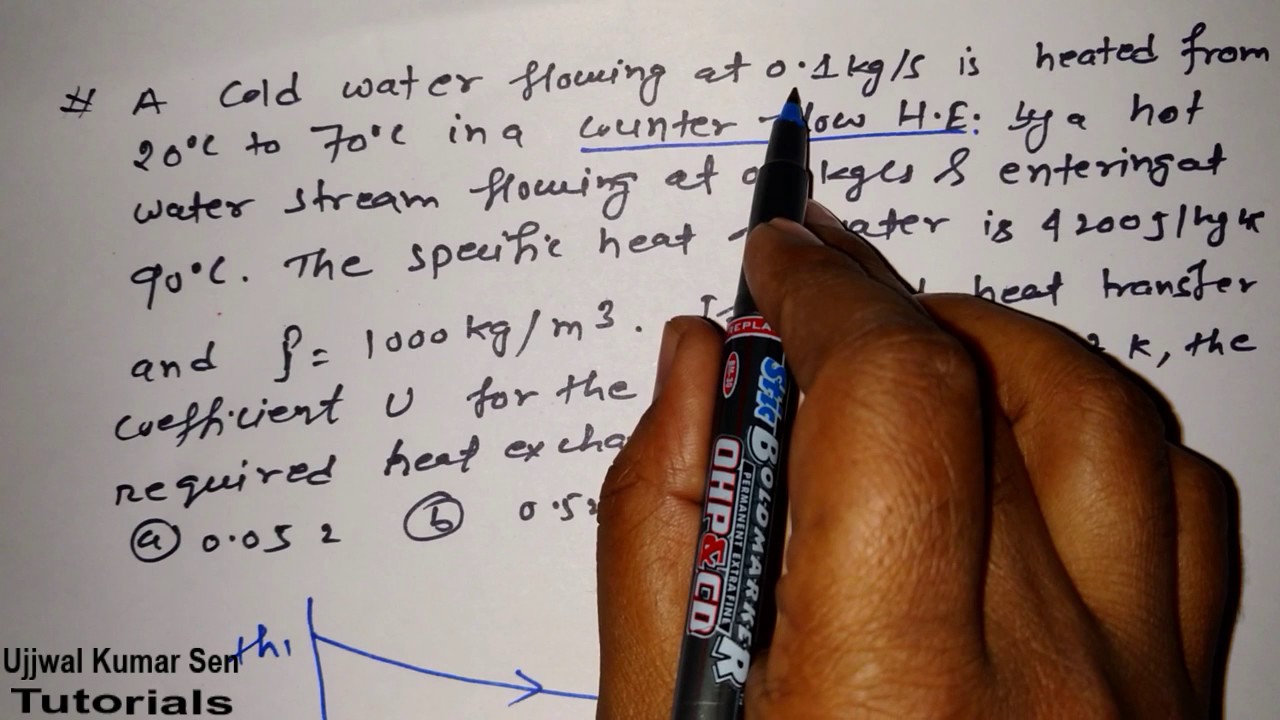 # A Cold water flowing at 0.1kg/s is heated from
20°C to 70°C in a counter flow H.E. by a hot
water stream flowing at kg/s & entering at
90°C. The specific heat water is 4200J/kgK
and ρ = 1000kg/m³. heat transfer
coefficient U for the K, the
required heat
(a) 0.052 (b) 0.52
th1
Ujjwal Kumar Sen
Tutorials
REPLA
Stic BOLDMARKER
PERMANENT EXTRAFINE
OHP&CD